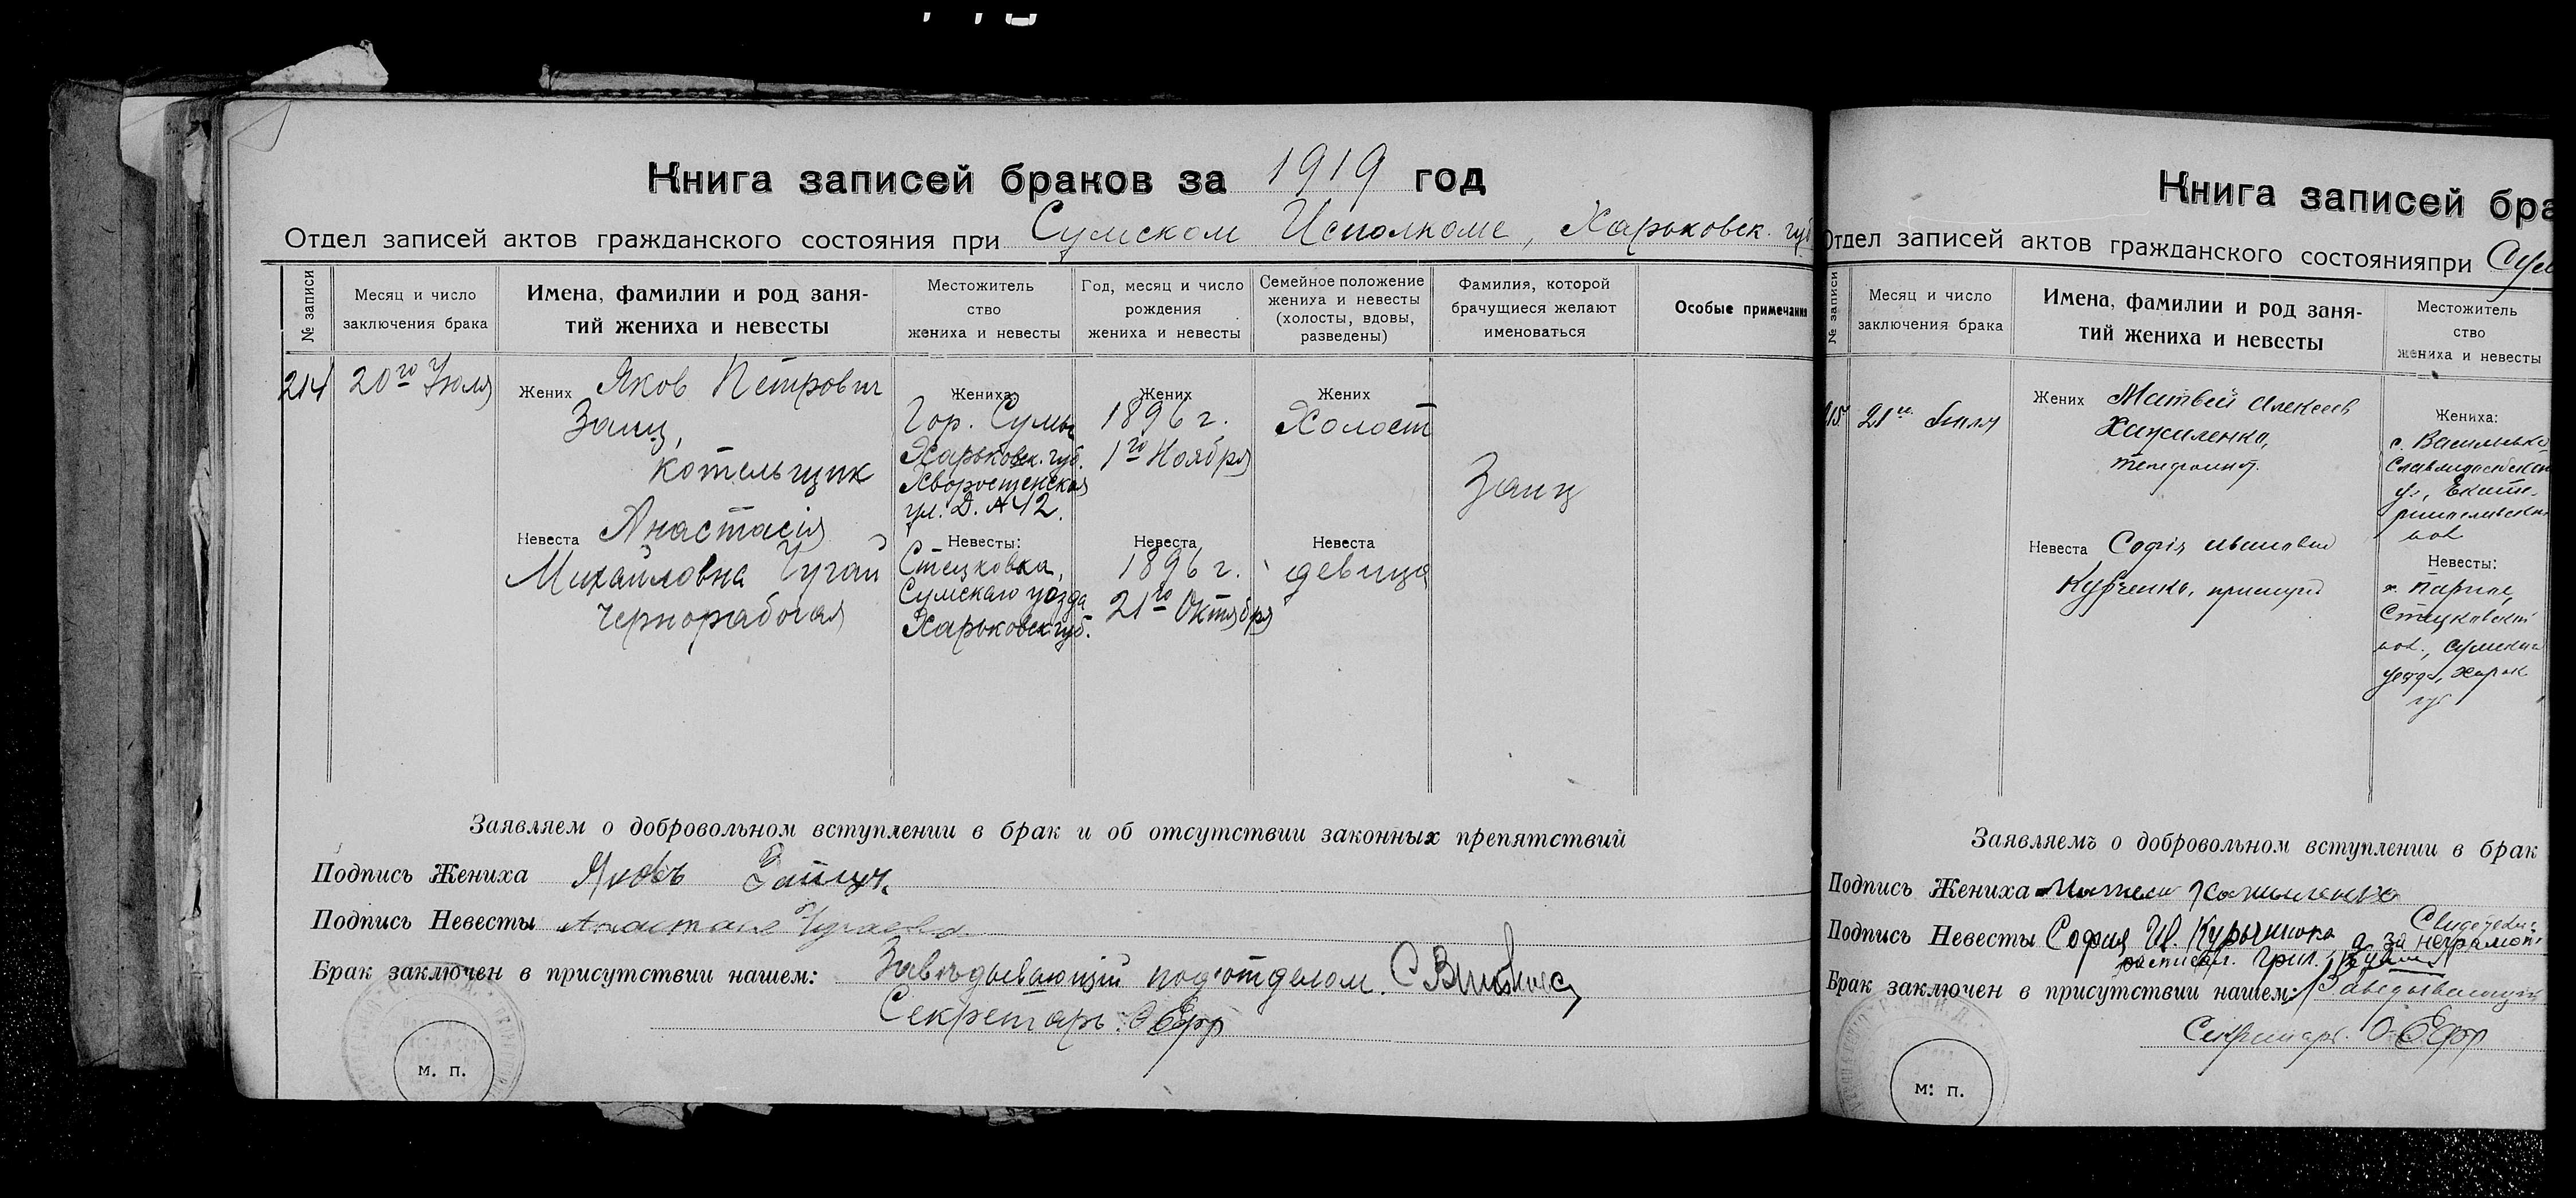 Книга записей браков за 1919 год
Отдел записей актов гражданского состояния при Сумском Исполкоме, Харьковск. губ
№ записи
Месяц и число
заключения брака
Имена, фамилии и род заня-
тий жениха и невесты
Местожитель
ство
жениха и невесты
Год, месяц и число
рождения
жениха и невесты
Семейное положение
жениха и невесты
(холосты, вдовы,
разведены)
Фамилия, которой
брачущиеся желают
именоваться
Особые примечания
214
20го Июля
Жених Яков Петрович
Заиц,
котельщик
Невеста Анастасія
Михайловна Чугай
Чернорабочая
Жениха:
Гор. Сумы
Харьковск. губ.
Хворостенская
ул. Д. № 12.
Невесты:
Стецковка,
Сумскаго уезда
Харьковск губ.
Жених
1896 г.
1го Ноября
Невеста
1896 г.
21го Октября
Жених
Холост
Невеста
девица
Заиц
Заявляем о добровольном вступлении в брак и об отсутствии законных препятствий
Подпись Жениха Яковъ
Подпись Невесты
Брак заключен в присутствии нашем: Заведывающій подотделом.
Секретарь:
м. п.
Книга записей бра
Отдел записей актов гражданского состоянияпри Сум
№ записи
Месяц и число
заключения брака
Имена, фамилии и род заня-
тий жениха и невесты
Местожитель
ство
жениха и невесты
215
21го Июля
Жених Матвей Алексеев
Невеста Софія Ивановна
Жениха:
Невесты:
Стецковской
вол., Сумскаго
уезда, Харьк
губ
Заявляемъ о добровольном вступлении в брак
Подпись Жениха
Подпись Невесты София Ив.
а за неграмот
Брак заключен в присутствии нашем: Заведывающій
Секретарь.
м: п.